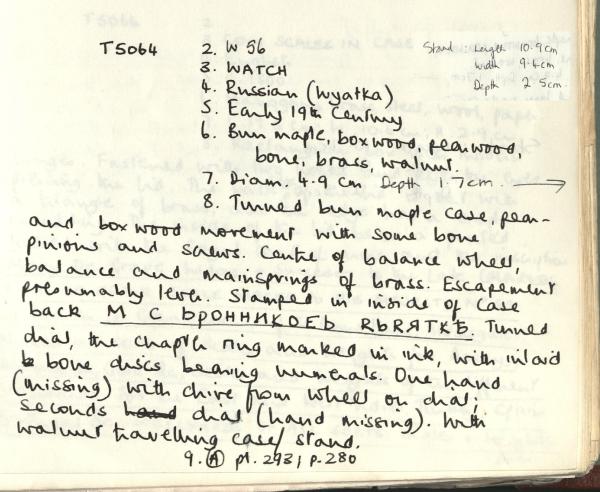 T5064 2. W 56 Stand: Length 10.9cm
3. WATCH Width 9.4cm
4. Russian (Wyatka) Depth 2.5cm
5. Early 19th Century
6. Burr maple, boxwood, pearwood,
bone, brass, walnut.
7. Diam. 4.9 cm Depth 1.7cm. →
8. Turned burr maple case, pear-
and boxwood movement with some bone
pinions and screws. Centre of balance wheel,
balance and mainsprings of brass. Escapement
presumably lever. Stamped in inside of case
back M C ЬРОННИКОЕЬ RЬRЯТКѢ. Turned
dial, the chapter ring marked in ink, with inlaid
bone discs bearing numerals. One hand
(missing) with drive from wheel on dial;
seconds hand dial (hand missing). With
walnut travelling case/stand.
9. A pl. 293, p. 280